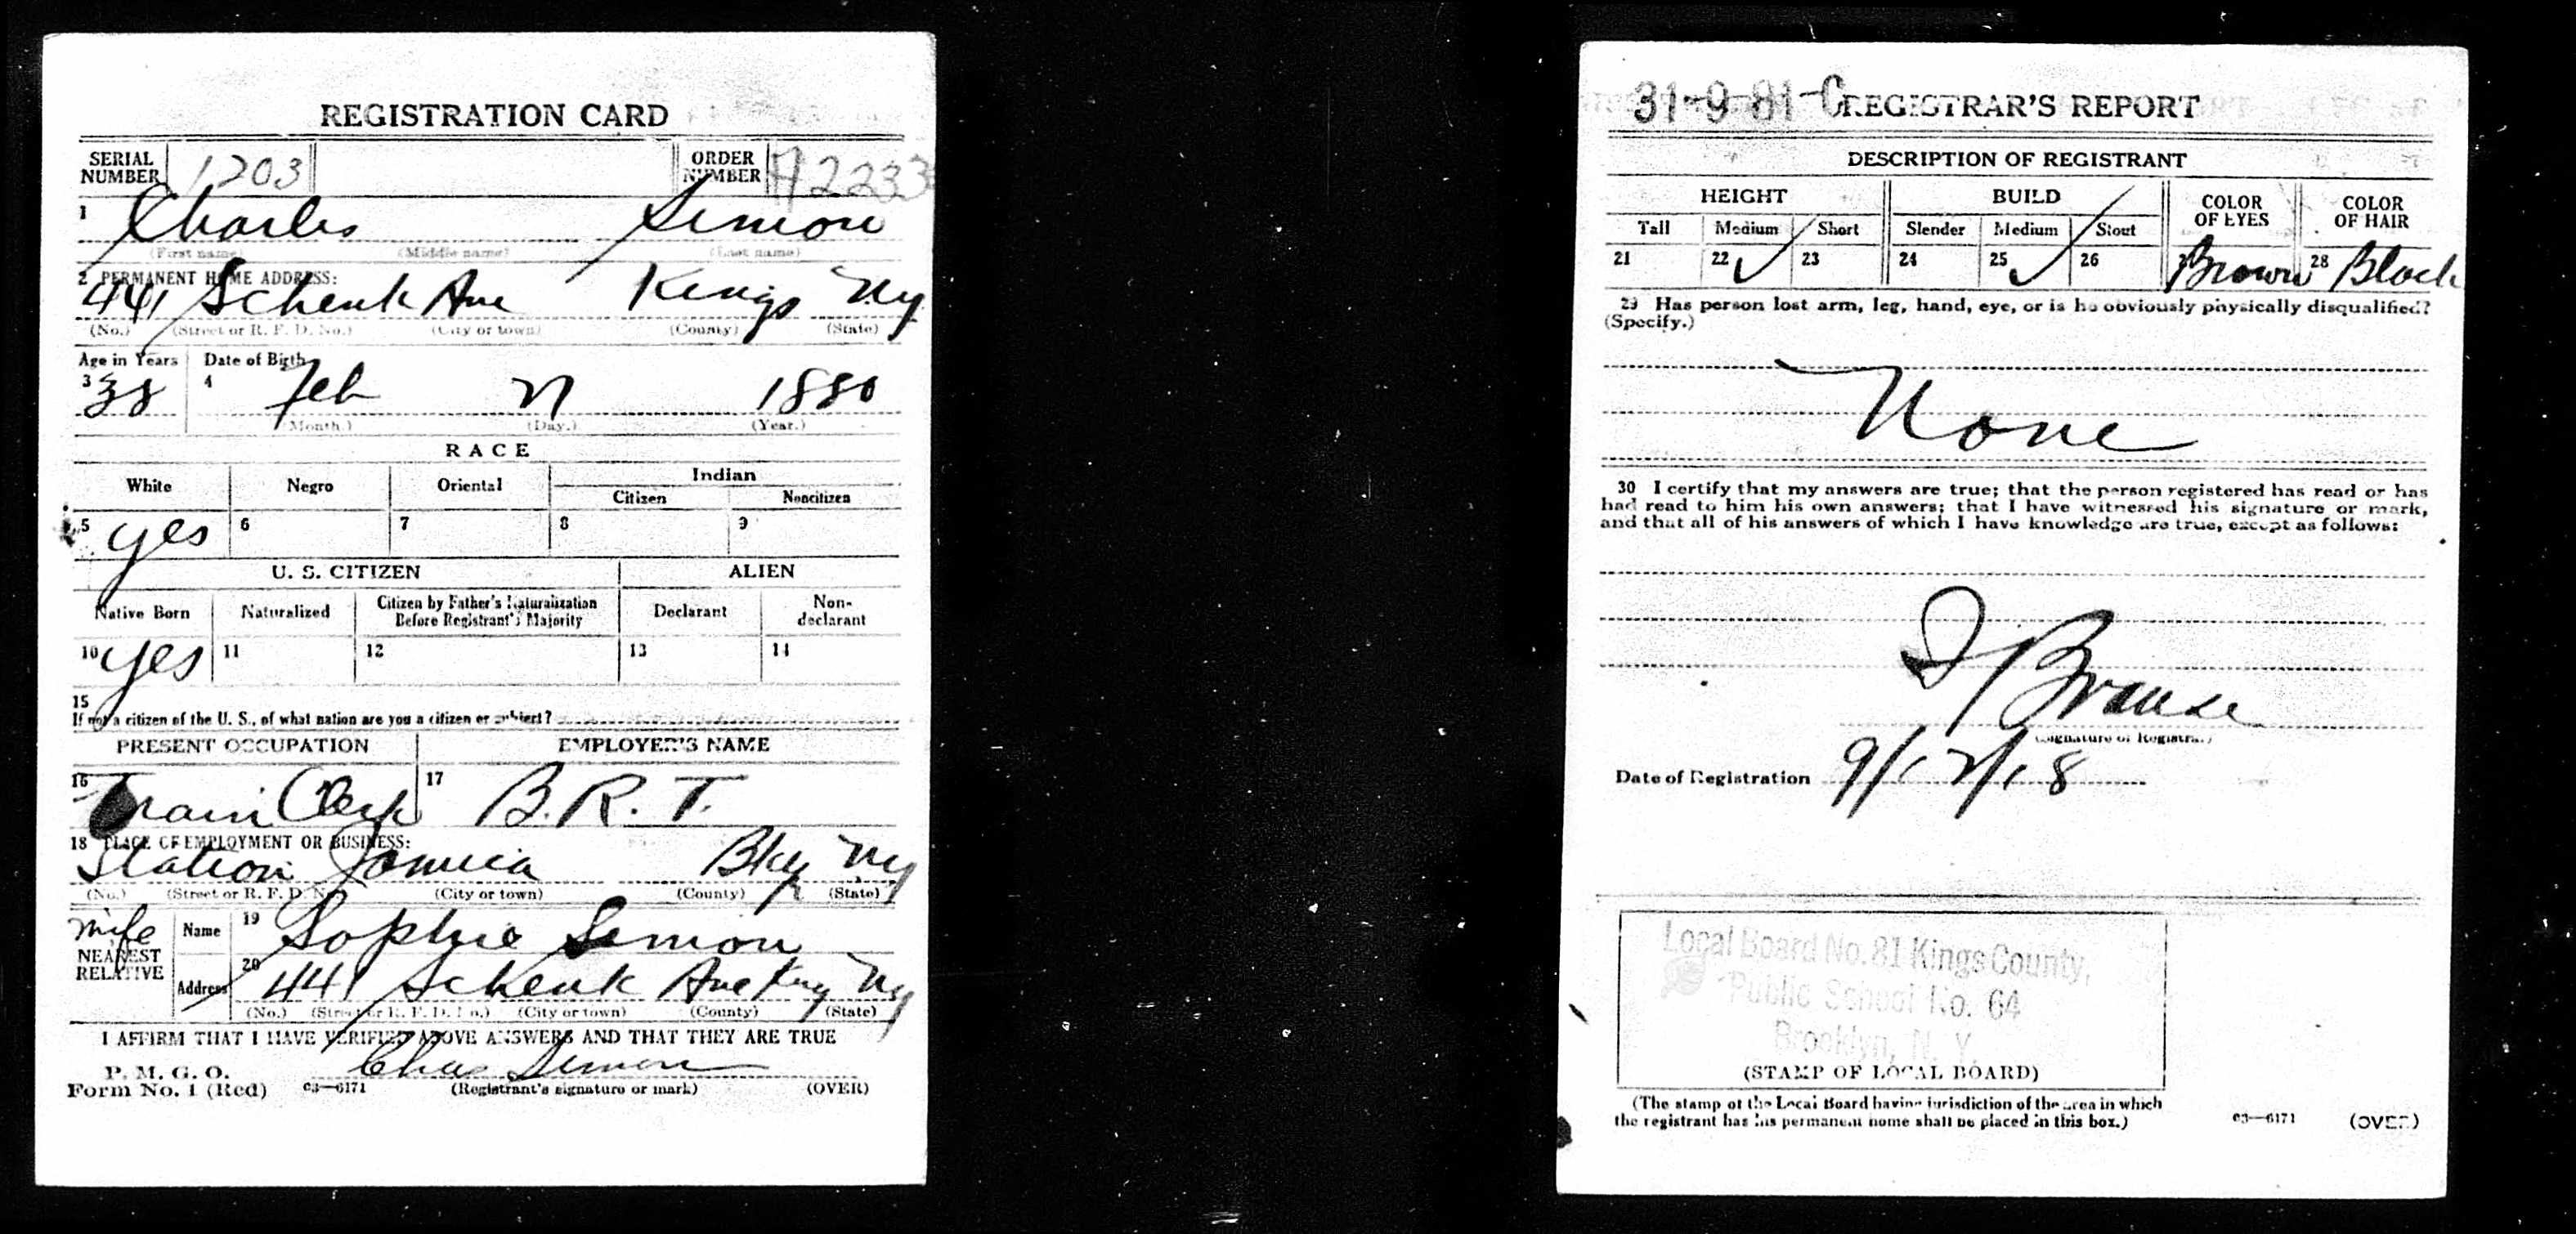 REGISTRATION CARD
SERIAL NUMBER 1203 ORDER NUMBER A2233
1 Charles Simon
(First name) (Middle name) (Last name)
2 PERMANENT HOME ADDRESS:
441 Schenk Ave Kings Ny
(No.) (Street or R. F. D. No.) (City or town) (County) (State)
Age in Years Date of Birth
3 38 4 Feb 1880
(Month.) (Day.) (Year.)
RACE
White Negro Oriental Indian
Citizen Noncitizen
5 yes 6 7 8 9
U. S. CITIZEN ALIEN
Native Born Naturalized Citizen by Father's Naturalization Before Registrant's Majority Declarant Non-declarant
10 yes 11 12 13 14
15
If not a citizen of the U. S., of what nation are you a citizen or subject?
PRESENT OCCUPATION EMPLOYER'S NAME
16 Train Clerk 17 B. R. T.
18 PLACE OF EMPLOYMENT OR BUSINESS:
Station Jamica Bkly Ny
(No.) (Street or R. F. D. No.) (City or town) (County) (State)
wife
NEAREST RELATIVE
Name 19 Sophie Simon
Address 20 441 Schenk Ave Ny
(No.) (Street or R. F. D. No.) (City or town) (County) (State)
I AFFIRM THAT I HAVE VERIFIED ABOVE ANSWERS AND THAT THEY ARE TRUE
Chas Simon
P. M. G. O.
Form No. 1 (Red) 03—6171 (Registrant's signature or mark) (OVER)
31-9-81-C REGISTRAR'S REPORT
DESCRIPTION OF REGISTRANT
HEIGHT BUILD COLOR OF EYES COLOR OF HAIR
Tall Medium Short Slender Medium Stout
21 22 ✓ 23 24 25 ✓ 26 Brown 28 Black
29 Has person lost arm, leg, hand, eye, or is he obviously physically disqualified?
(Specify.)
None
30 I certify that my answers are true; that the person registered has read or has
had read to him his own answers; that I have witnessed his signature or mark,
and that all of his answers of which I have knowledge are true, except as follows:
(Signature of Registrar)
Date of Registration 9/12/18
Local Board No. 81 Kings County,
Public School No. 64
Brooklyn, N. Y.
(STAMP OF LOCAL BOARD)
(The stamp of the Local Board having jurisdiction of the area in which
the registrant has his permanent home shall be placed in this box.)
03—6171 (OVER)